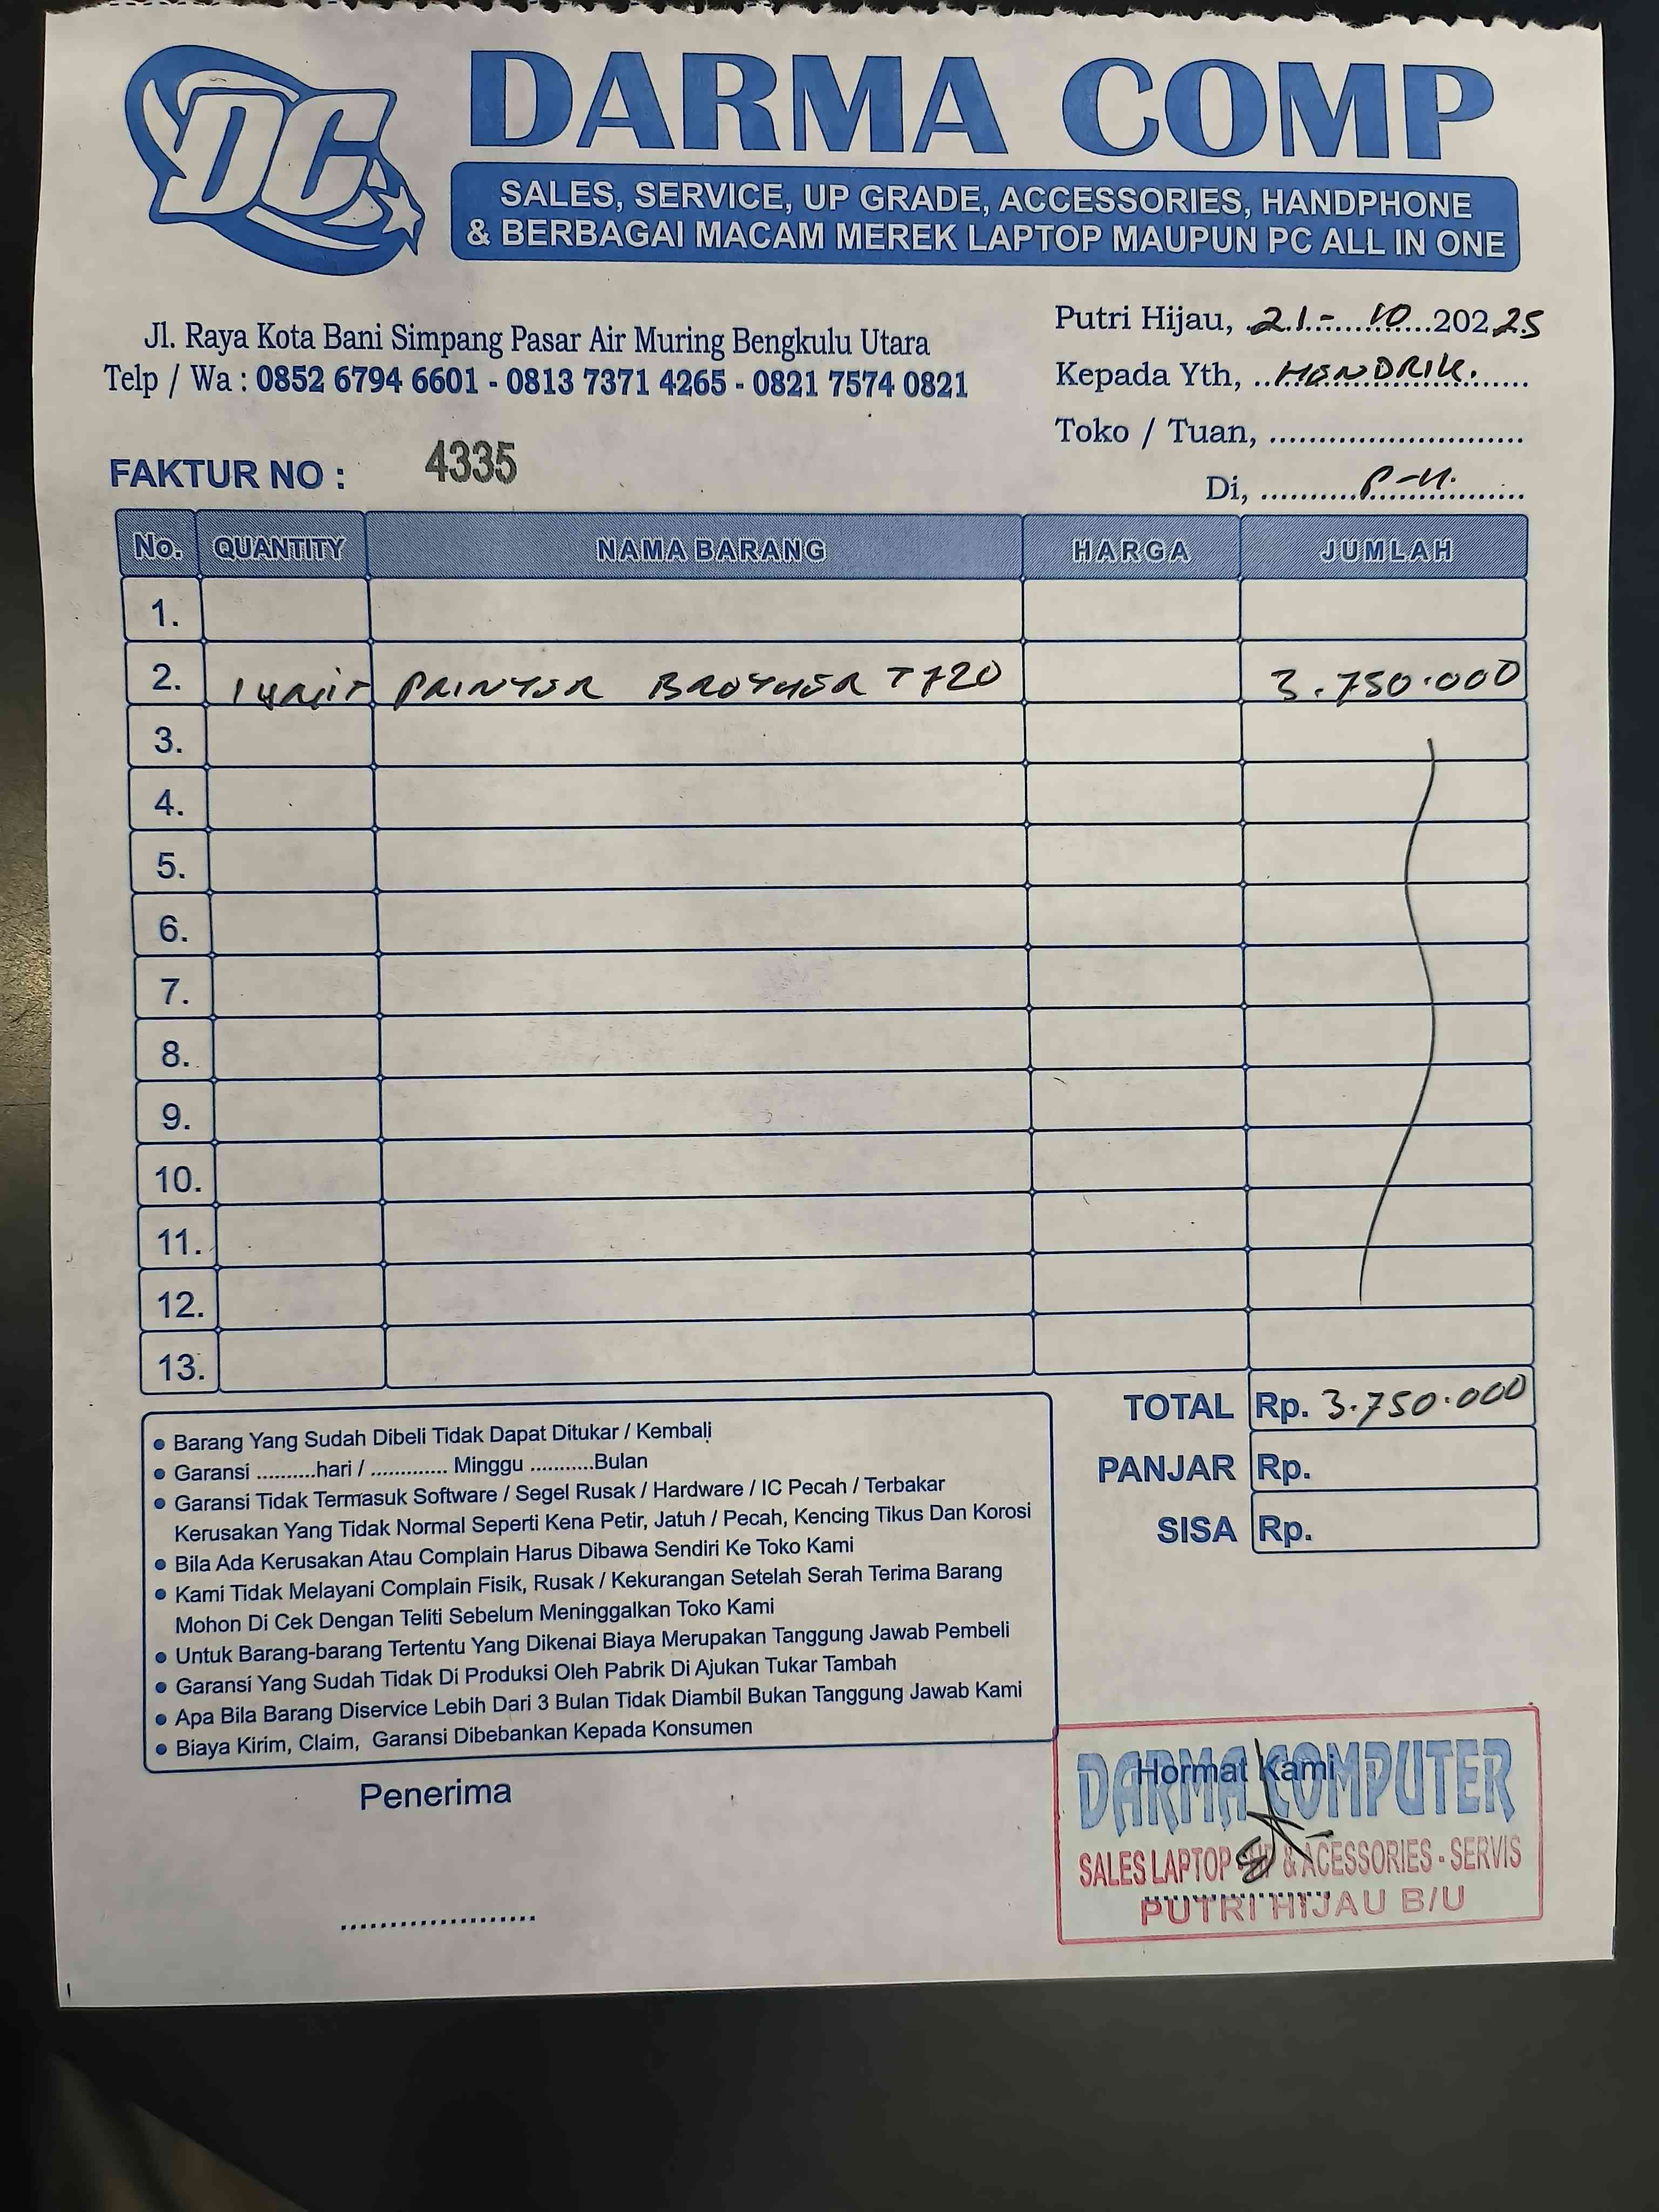 DC
DARMA COMP
SALES, SERVICE, UP GRADE, ACCESSORIES, HANDPHONE
& BERBAGAI MACAM MEREK LAPTOP MAUPUN PC ALL IN ONE
Jl. Raya Kota Bani Simpang Pasar Air Muring Bengkulu Utara
Telp / Wa : 0852 6794 6601 - 0813 7371 4265 - 0821 7574 0821
Putri Hijau, 21-10 202 25
Kepada Yth, HENDRIK.
Toko / Tuan, ..........................
Di, P-H.
FAKTUR NO : 4335
No. QUANTITY NAMA BARANG HARGA JUMLAH
1.
2. 1 unit PRINTER BROTHER T720 3.750.000
3.
4.
5.
6.
7.
8.
9.
10.
11.
12.
13.
TOTAL Rp. 3.750.000
PANJAR Rp.
SISA Rp.
• Barang Yang Sudah Dibeli Tidak Dapat Ditukar / Kembali
• Garansi ..........hari / ............. Minggu ...........Bulan
• Garansi Tidak Termasuk Software / Segel Rusak / Hardware / IC Pecah / Terbakar
Kerusakan Yang Tidak Normal Seperti Kena Petir, Jatuh / Pecah, Kencing Tikus Dan Korosi
• Bila Ada Kerusakan Atau Complain Harus Dibawa Sendiri Ke Toko Kami
• Kami Tidak Melayani Complain Fisik, Rusak / Kekurangan Setelah Serah Terima Barang
Mohon Di Cek Dengan Teliti Sebelum Meninggalkan Toko Kami
• Untuk Barang-barang Tertentu Yang Dikenai Biaya Merupakan Tanggung Jawab Pembeli
• Garansi Yang Sudah Tidak Di Produksi Oleh Pabrik Di Ajukan Tukar Tambah
• Apa Bila Barang Diservice Lebih Dari 3 Bulan Tidak Diambil Bukan Tanggung Jawab Kami
• Biaya Kirim, Claim, Garansi Dibebankan Kepada Konsumen
Penerima
Hormat Kami
DARMA COMPUTER
SALES LAPTOP - HP & ACESSORIES - SERVIS
PUTRI HIJAU B/U